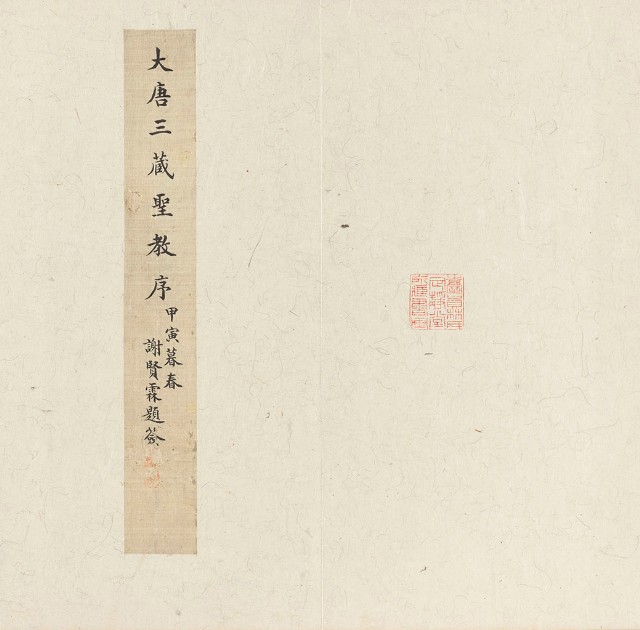 大唐三藏聖教序
甲寅暮春
謝賢霖題簽